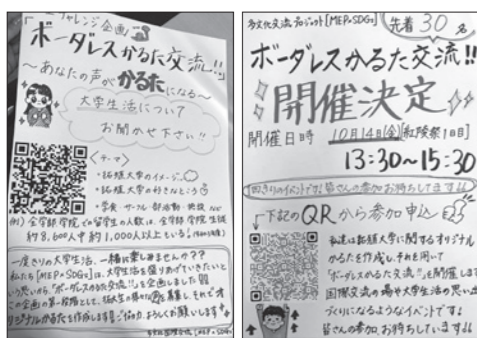 チャレンジ企画
ボーダレスかるた交流!!
～あなたの声がかるたになる～
大学生活について
お聞かせ下さい!!
〈テーマ〉
・拓殖大学のイメージ
・拓殖大学の好きなところ
・学食・サークル・部活動・施設 など
例) 全学部学院での留学生の人数は、全学部学院生徒
約8,600人中約1,000人以上もいる!
一度きりの大学生活、一緒に楽しみませんか???
私たち[MEP×SDGs]は、大学生活を盛りあげていきたいと
いう思いから「ボーダレスかるた交流!!」を企画しました
リジナルかるたを作成します ご協力、よろしくお願いします
多文化交流プロジェクト[MEP×SDGs]
先着30名
ボーダレスかるた交流!!
開催決定
開催日時 10月14日(金)[紅陵祭1日目]
13:30~15:30
1回きりのイベントです!皆さんの参加お待ちしてます
下記のQRから参加申込
私達は拓殖大学に関するオリジナル
かるたを作成し、それを用いて
「ボーダレスかるた交流!!」を開催します
国際交流の場や大学生活の思い出
づくりになるようなイベントです!
皆さんの参加、お待ちしています